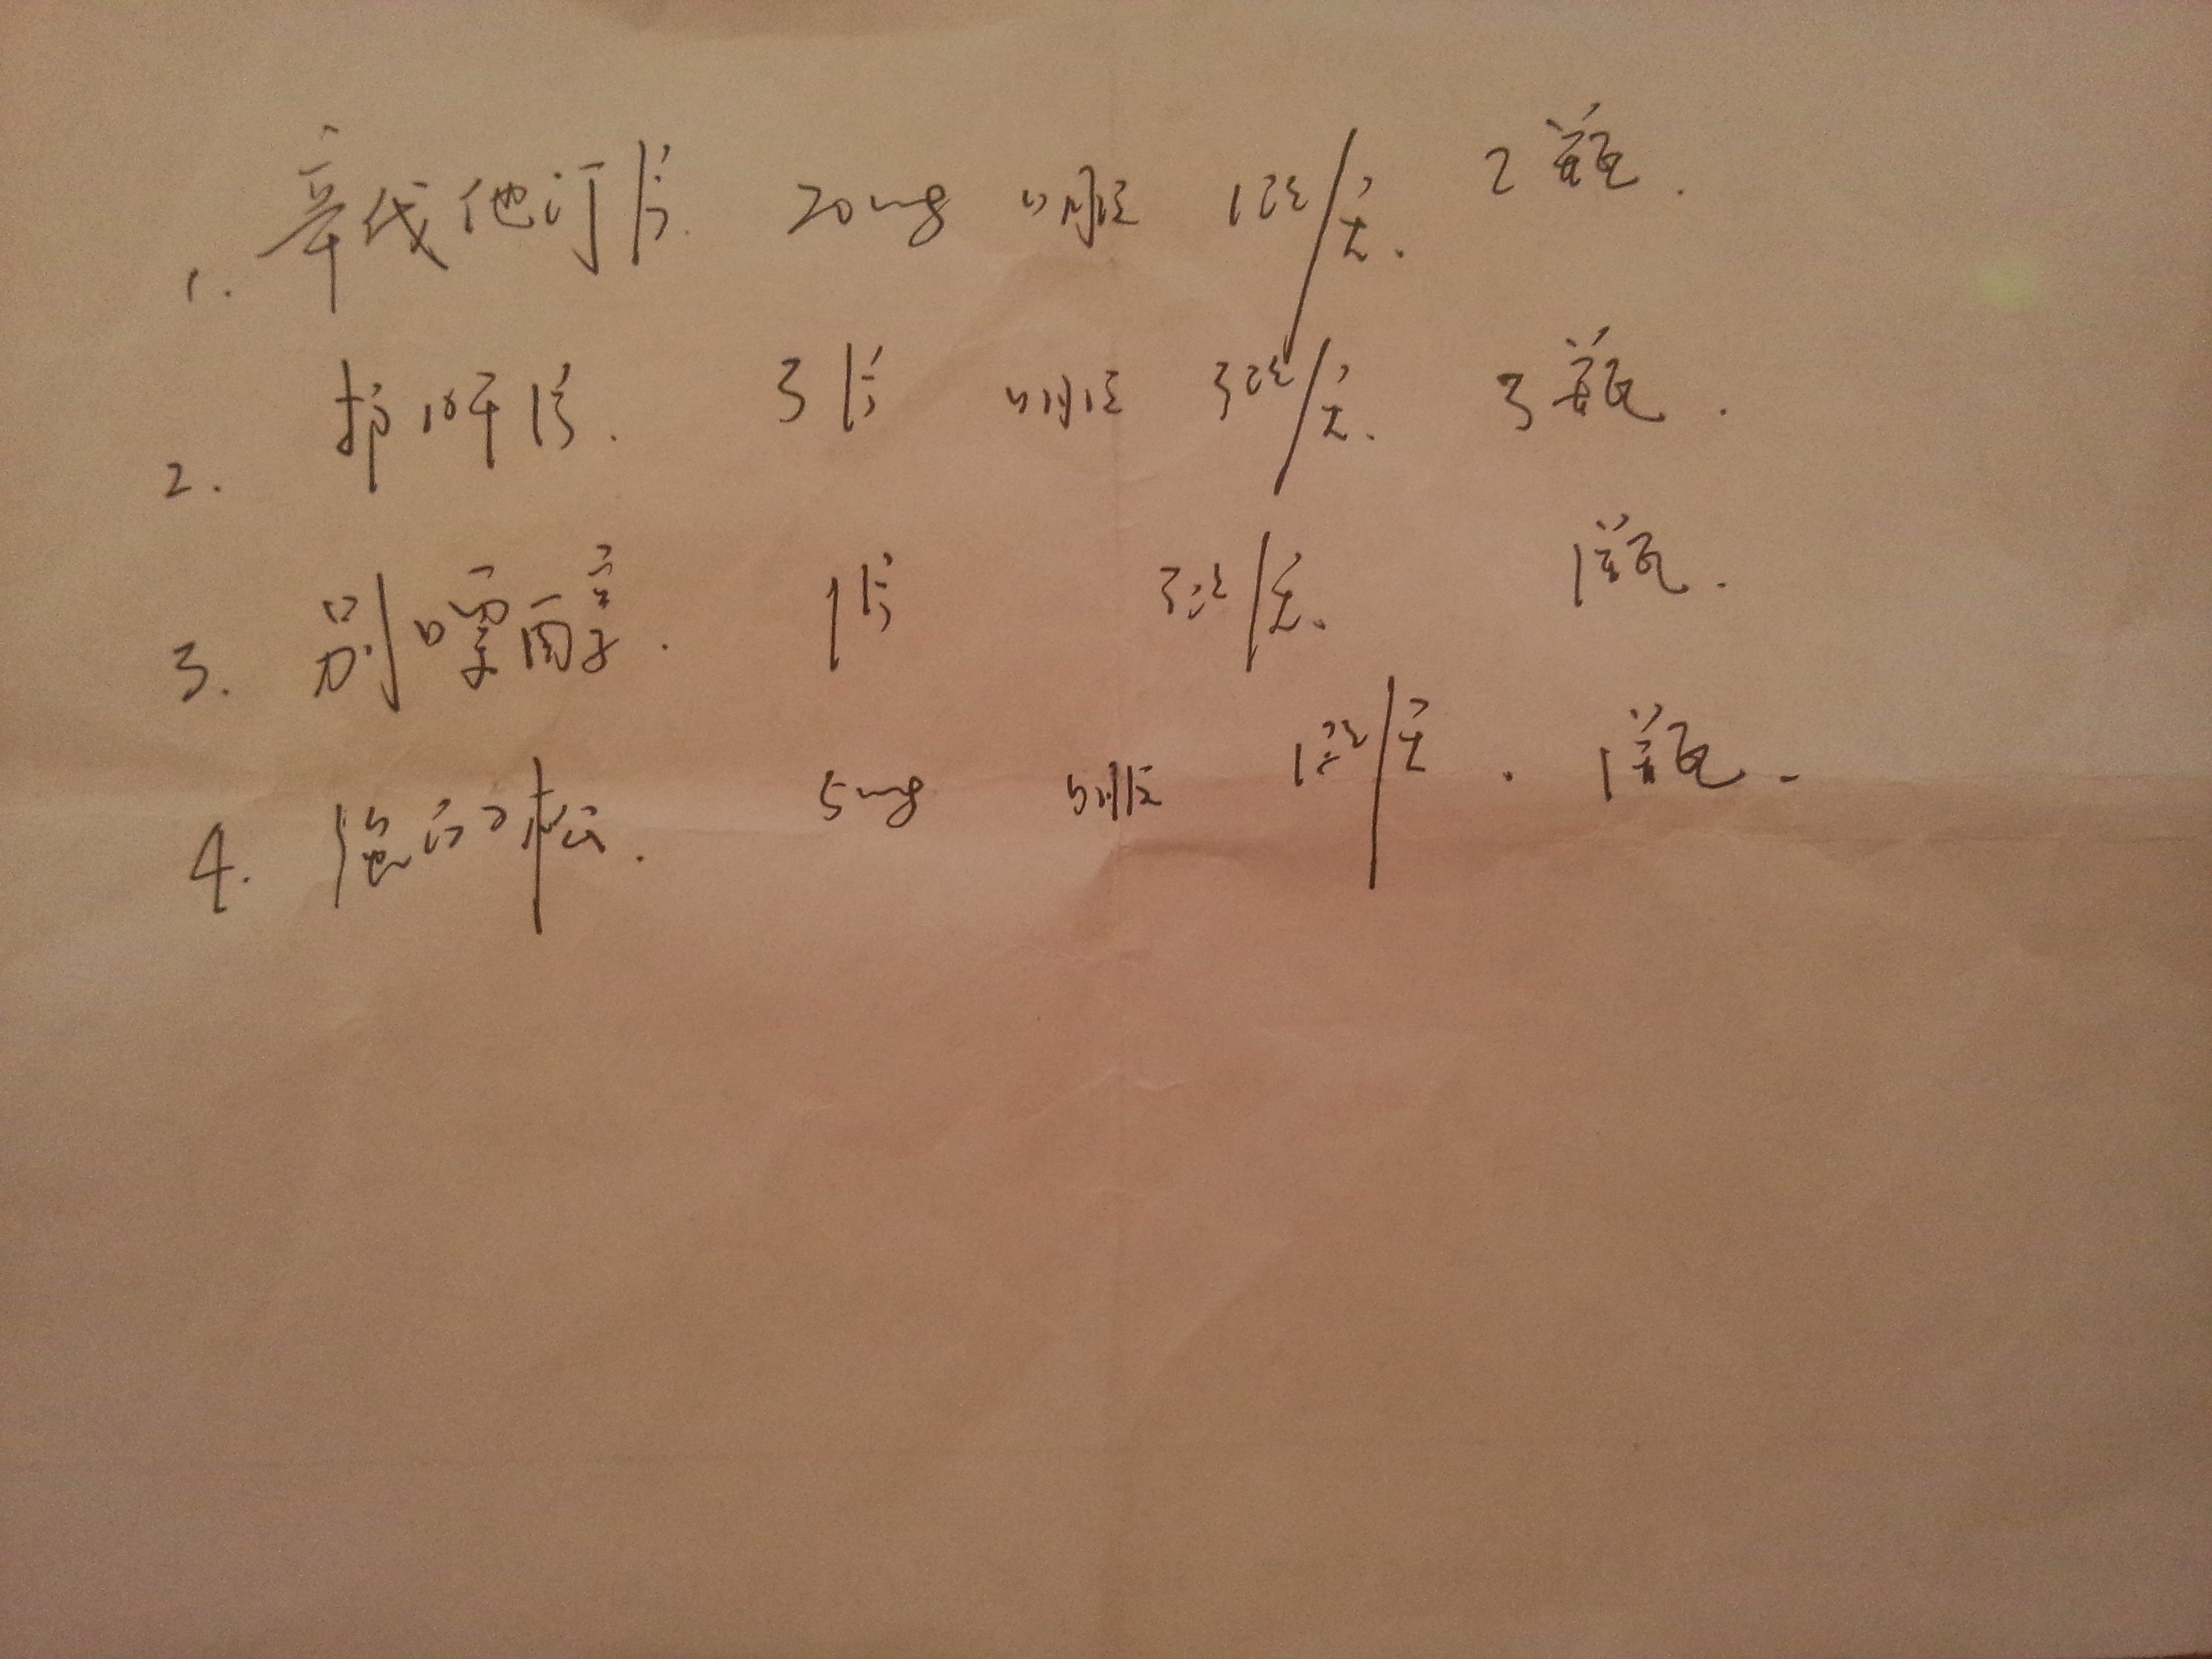 1. 辛伐他汀片. 20mg 口服 1次/天. 2瓶.
2. 护肝片. 3片 口服 3次/天. 3瓶.
3. 别嘌醇. 1片 3次/天. 1瓶.
4. 强的松. 5mg 口服 1次/天. 1瓶.